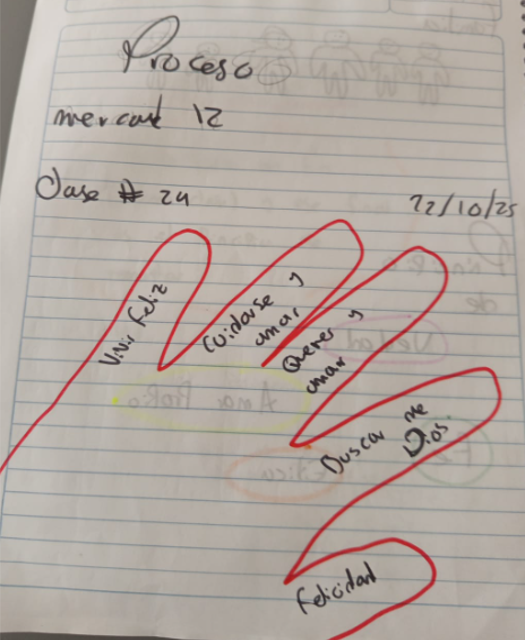 Proceso
mercado 12
Clase # 24
22/10/25
Vivir Feliz
Cuidarse y
amar
Querer y
amar
Buscar me
Dios.
Felicidad
Amor Propio
Ética